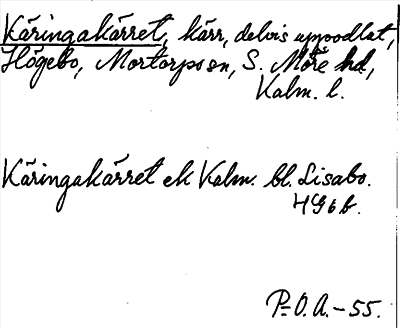 Käringakärret, kärr, delvis uppodlat,
Högebo, Mortorps sn, S. Möre hd,
Kalm. l.
Käringakärret ek Kalm. bl. Lisabo.
P-O.A.-55.